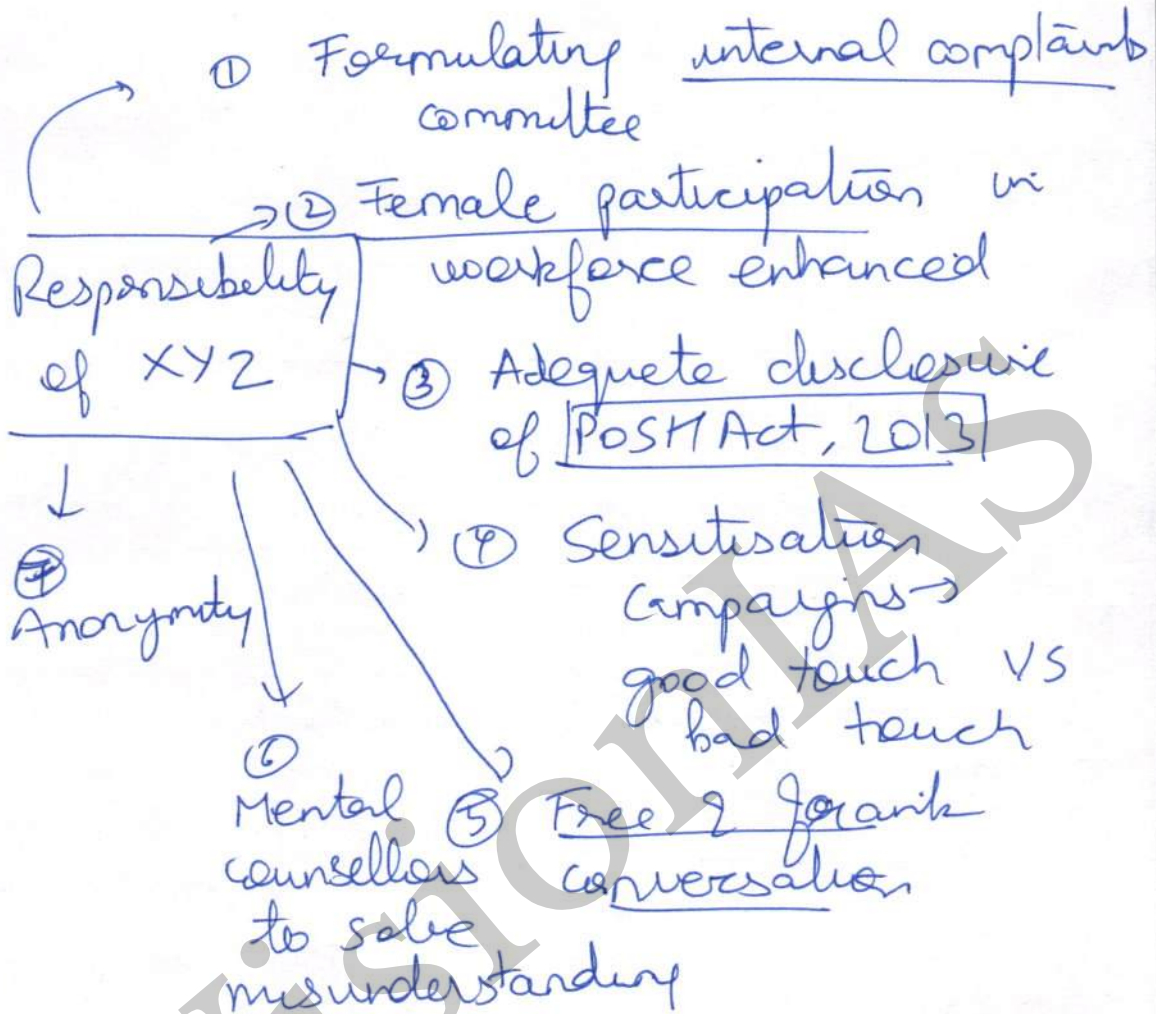 ① Formulating internal complaints
committee
② Female participation in
workforce enhanced
Responsibility
of XYZ
③ Adequete disclosure
of PoSH Act, 2013
④ Sensitisation
Campaigns →
good touch VS
bad touch
⑤ Free & frank
conversation
⑥
Mental
counsellors
to solve
misunderstanding
⑦
Anonymity
VisionIAS